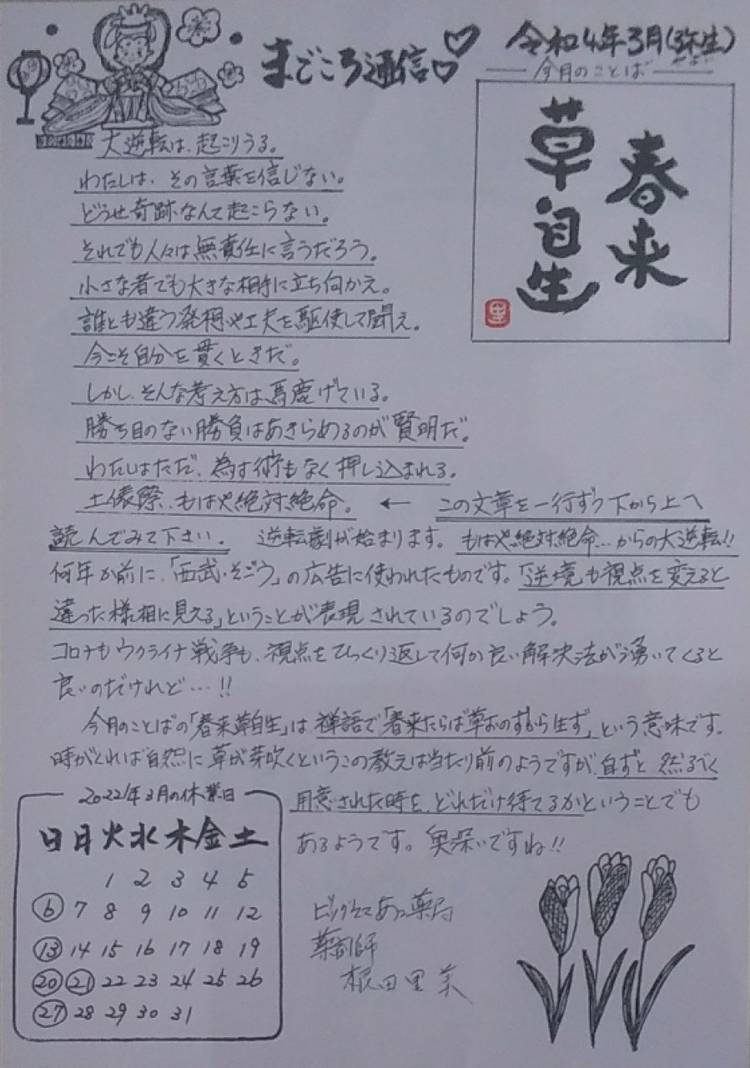 まごころ通信
令和4年3月(弥生)
今月のことば
春来
草自生
大逆転は、起こりうる。
わたしは、その言葉を信じない。
どうせ奇跡なんて起こらない。
それでも人々は無責任に言うだろう。
小さな者でも大きな相手に立ち向かえ。
誰とも違う発想や工夫を駆使して闘え。
今こそ自分を貫くときだ。
しかし、そんな考え方は馬鹿げている。
勝ち目のない勝負はあきらめるのが賢明だ。
わたしはただ、為す術もなく押し込まれる。
土俵際、もはや絶対絶命。 ← この文章を一行ずつ下から上へ
読んでみて下さい。 逆転劇が始まります。もはや絶対絶命…からの大逆転!!
何年か前に、「西武・そごう」の広告に使われたものです。「逆境も視点を変えると
違った様相に見える」ということが表現されているのでしょう。
コロナもウクライナ戦争も、視点をひっくり返して何か良い解決法が湧いてくると
良いのだけれど…!!
今月のことばの「春来草自生」は禅語で「春来たらば草おのずから生ず」という意味です。
時がくれば自然に草が芽吹くというこの教えは当たり前のようですが、自ずと然るべく
用意された時を、どれだけ待てるかということでも
あるようです。奥深いですね!!
2022年3月の休業日
日月火水木金土
1 2 3 4 5
6 7 8 9 10 11 12
13 14 15 16 17 18 19
20 21 22 23 24 25 26
27 28 29 30 31
薬局
薬剤師
根田里美